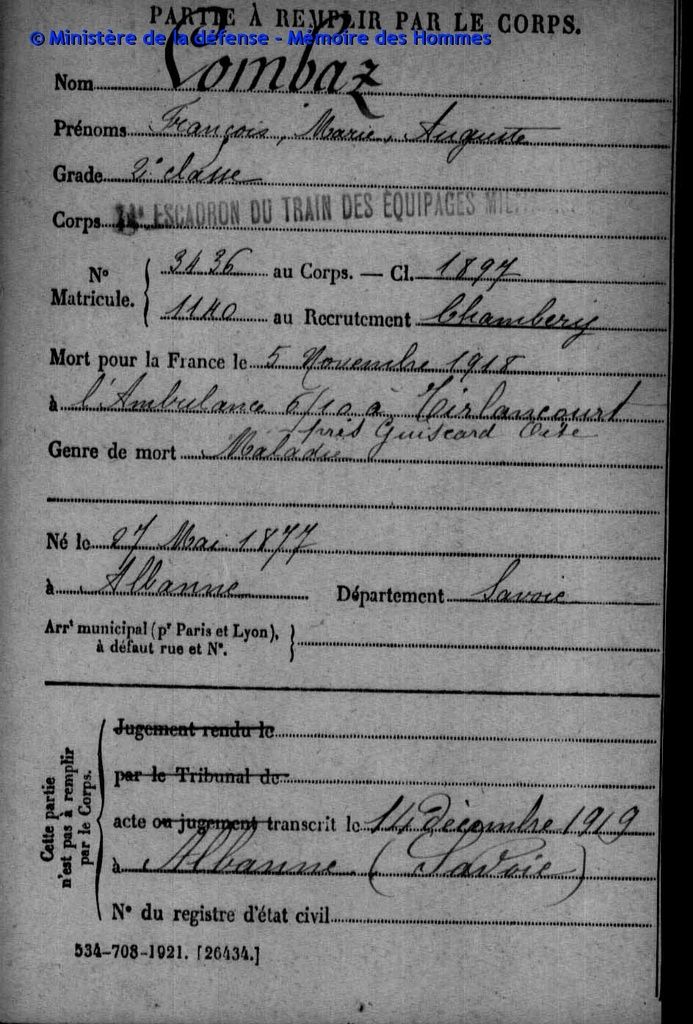 PARTIE À REMPLIR PAR LE CORPS.
© Ministère de la défense - Mémoire des Hommes
Nom Combaz
Prénoms François, Marie, Auguste
Grade 2e classe
Corps 14e ESCADRON DU TRAIN DES ÉQUIPAGES
No Matricule. 3436 au Corps. — Cl. 1897
1140 au Recrutement Chambery
Mort pour la France le 5 Novembre 1918
à l'Ambulance 6/10 à Tirlancourt
près Guiscard Oise
Genre de mort Maladie
Né le 27 Mai 1877
à Albanne Département Savoie
Arrt municipal (pr Paris et Lyon),
à défaut rue et No.
Jugement rendu le
par le Tribunal de
acte ou jugement transcrit le 14 décembre 1919
à Albanne (Savoie)
No du registre d'état civil
Cette partie
n'est pas à remplir
par le Corps.
534-708-1921. [26434.]